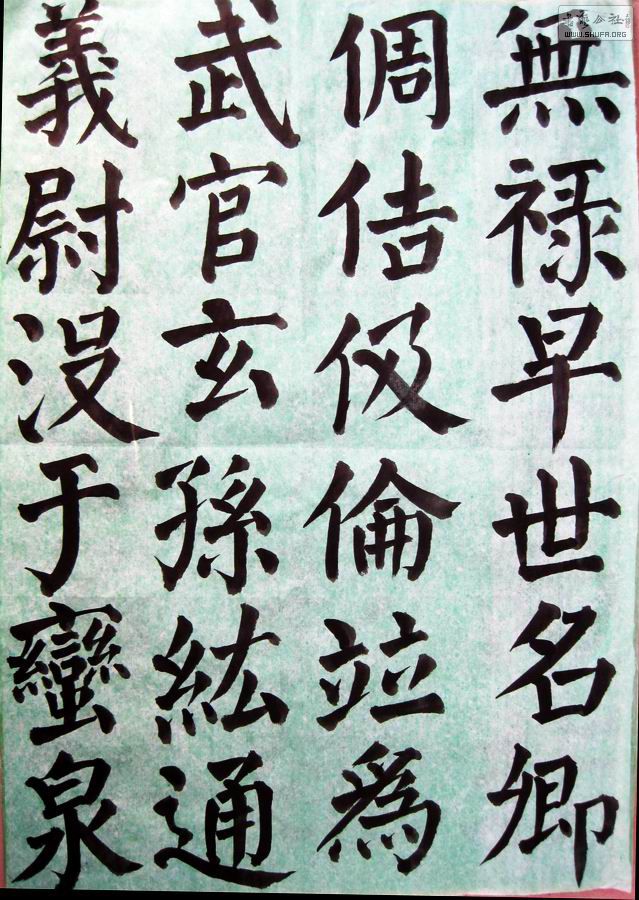 無禄早世名卿
倜佶伋倫竝為
武官玄孫紘通
義尉没于蠻泉
WWW.SHUFA.ORG